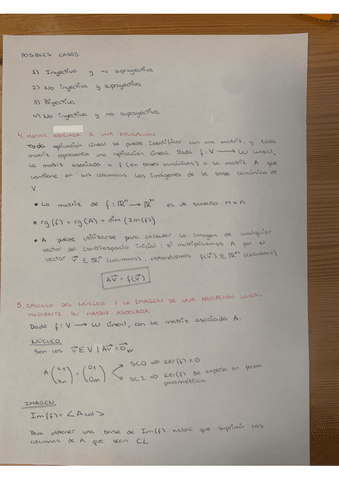 POSIBLES CASOS
1) Inyectiva y no suprayectiva
2) No inyectiva y suprayectiva
3) Biyectiva
4) No inyectiva y no suprayectiva
4. MATRIZ ASOCIADA A UNA APLICACIÓN
Toda aplicación lineal se puede identificar con una matriz, y cada
matriz representa una aplicación lineal. Dada f: V → W lineal,
la matriz asociada a f (en bases canónicas) a la matriz A que
contiene en sus columnas las imágenes de la base canónica de
V
• La matriz de f: ℝⁿ → ℝᵐ es de tamaño m×n
• rg(f) = rg(A) = dim(Im(f))
• A puede utilizarse para calcular la imagen de cualquier
vector del inicial: si multiplicamos A por el
vector v⃗ ∈ ℝⁿ (columnas), obtendremos f(v⃗) ∈ ℝᵐ (columnas).
Av⃗ = f(v⃗)
5. CÁLCULO DEL NÚCLEO Y LA IMAGEN DE UNA APLICACIÓN LINEAL
MEDIANTE SU MATRIZ ASOCIADA
Dada f: V → W lineal, con la matriz asociada A:
NÚCLEO
Son los v⃗ ∈ V | Av⃗ = 0⃗w
A (x1 xn) = (01 0m) SCD ⇒ Ker(f) = 0
SCI ⇒ Ker(f) se expresa en forma
paramétrica
IMAGEN
Im(f) = <A col>
Para obtener una base de Im(f) habrá que suprimir las
columnas de A que sean CL